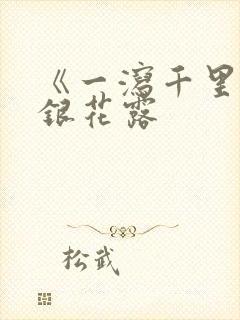 《一瀉千里
銀花露
松武